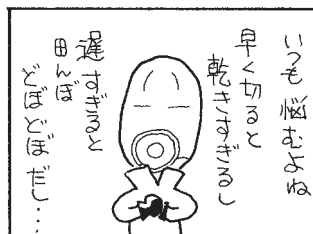 いつも悩むよね
早く切ると
乾きすぎるし
遅すぎると
田んぼ
どぼどぼだし…